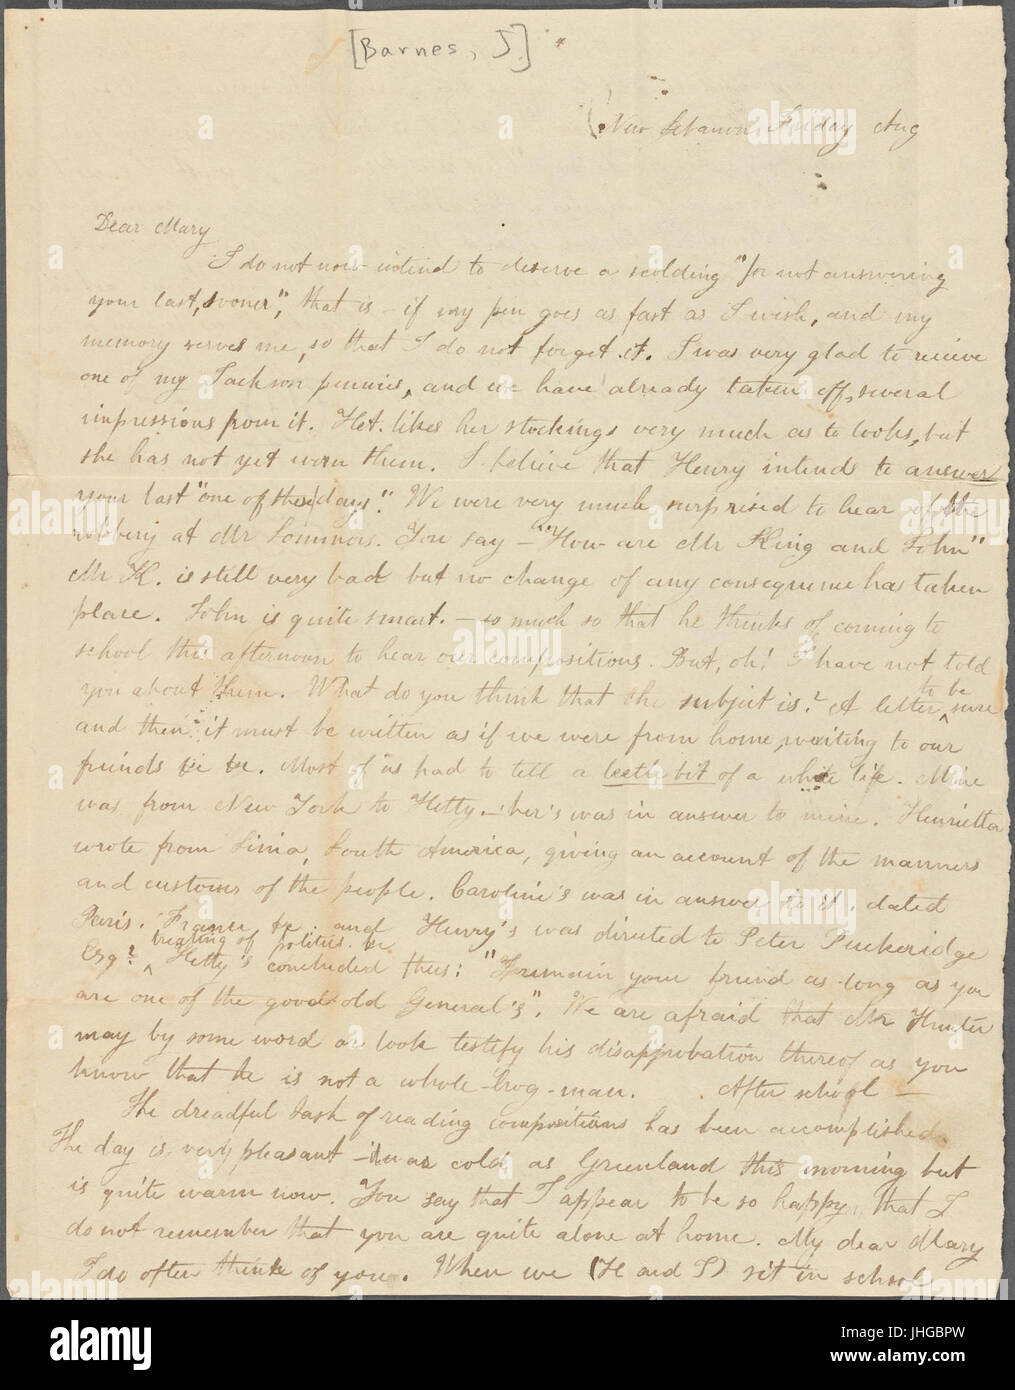 [Barnes, J]
New Lebanon, Friday Aug
Dear Mary
I do not now intend to deserve a scolding "for not answering
your last, sooner", that is – if my pen goes as fast as I wish, and my
memory serves me, so that I do not forget it. I was very glad to recieve
one of my Jackson pennies, and we have already taken off, several
impressions from it. Het. likes her stockings very much as to looks, but
she has not yet worn them. I believe that Henry intends to answer
your last "one of these days". We were very much surprised to hear of the
robbery at Mr Lommois. You say – "How are Mr King and John"
Mr K. is still very bad but no change of any consequence has taken
place. John is quite smart. – so much so that he thinks of coming to
school this afternoon to hear our compositions. But, oh! I have not told
you about them. What do you think that the subject is? A letter to be sure
and then it must be written as if we were from home, writing to our
friends &c &c. Most of us had to tell a leetle bit of a white lie. Mine
was from New York to Hetty. – her's was in answer to mine. Henrietta
wrote from Lima, South America, giving an account of the manners
and customs of the people. Caroline's was in answer to it, dated
Paris, France &c. and Henry's was directed to Peter Puckeridge
Esqr treating of politics. &c Hetty's concluded thus: "I remain your friend as long as you
are one of the good old General's". We are afraid that Mr Hunter
may by some word or look testify his disapprobation thereof as you
know that he is not a whole-hog-man. After school –
The dreadful task of reading compositions has been accomplished.
The day is very pleasant – it was cold as Greenland this morning but
is quite warm now. You say that I appear to be so happy, that I
do not remember that you are quite alone at home. My dear Mary
I do often think of you. When we (H and I) sit in school
alamy
a
Image ID: JHGBPW
www.alamy.com